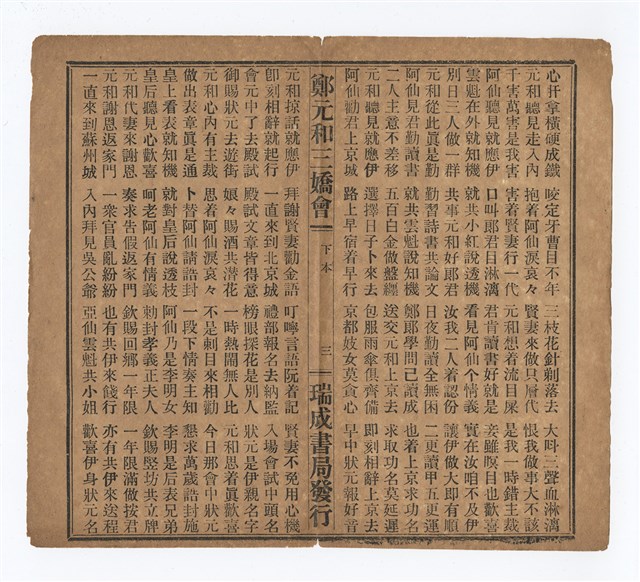 心扞拿橫硬成鐵 咬定牙曹目不年 三枝花針剃落去 大呌三聲血淋漓
元和聽見走入內 抱着阿仙淚哀々 賢妻來做只層代 恨我做事大不該
千害萬害是我害 害着賢妻行一代 元和想着流目屎 是我一時錯主裁
阿仙聽見就應伊 口叫郎君目淋漓 君肯讀書好就是 妾雖瞑目也歡喜
雲魁在外就知機 就共小紅說透機 看見阿仙个情義 實在汝咱不及伊
別日三人做一群 共事元和好郎君 汝我二人着認份 讓伊做大即有順
元和從此眞是勤 勤習詩書共論文 日夜勤讀全無困 二更讀甲五更運
阿仙見君勤讀書 就共雲魁說知機 鄭郎學問已讀成 也着上京求功名
二人主意不差移 五百白金做盤纏 送交元和上京去 求取功名莫延遲
元和聽見就應伊 選擇日子卜來去 包服雨傘俱齊備 即刻相辭上京去
阿仙勸君上京城 路上早宿着早行 京都妓女莫貪心 早中狀元報好音
鄭元和三嬌會 下本 三 瑞成書局發行
元和掠話就應伊 拜謝賢妻勸金語 叮嚀言語阮着記 賢妻不免用心機
卽刻相辭就起行 一直來到北京城 禮部報名去納監 入場會試中頭名
會元中了去殿試 殿試文章皆得意 榜眼探花是別人 狀元是伊親名字
御賜狀元去遊街 娘々賜酒共潸花 一時熱鬧無人比 元和思着眞歡喜
元和心內有主裁 思着阿仙淚哀々 不是剌目來相勸 今日那會中狀元
做出表章眞是通 卜替阿仙請誥封 一段下情奏主知 懇求萬歲誥封施
皇上看表就知機 就對皇后說透枝 阿仙乃是李明女 李明是后表兄弟
皇后聽見心歡喜 呵老阿仙有情義 勅封孝義正夫人 欽賜竪坊共立牌
元和代妻來謝恩 奏求告假返家門 欽賜回鄉一年限 一年限滿做按君
元和謝恩返家門 一衆官員亂紛紛 也有共伊來餞行 亦有共伊來送程
一直來到蘇州城 入內拜見吳公爺 亞仙雲魁共小姐 歡喜伊身狀元名